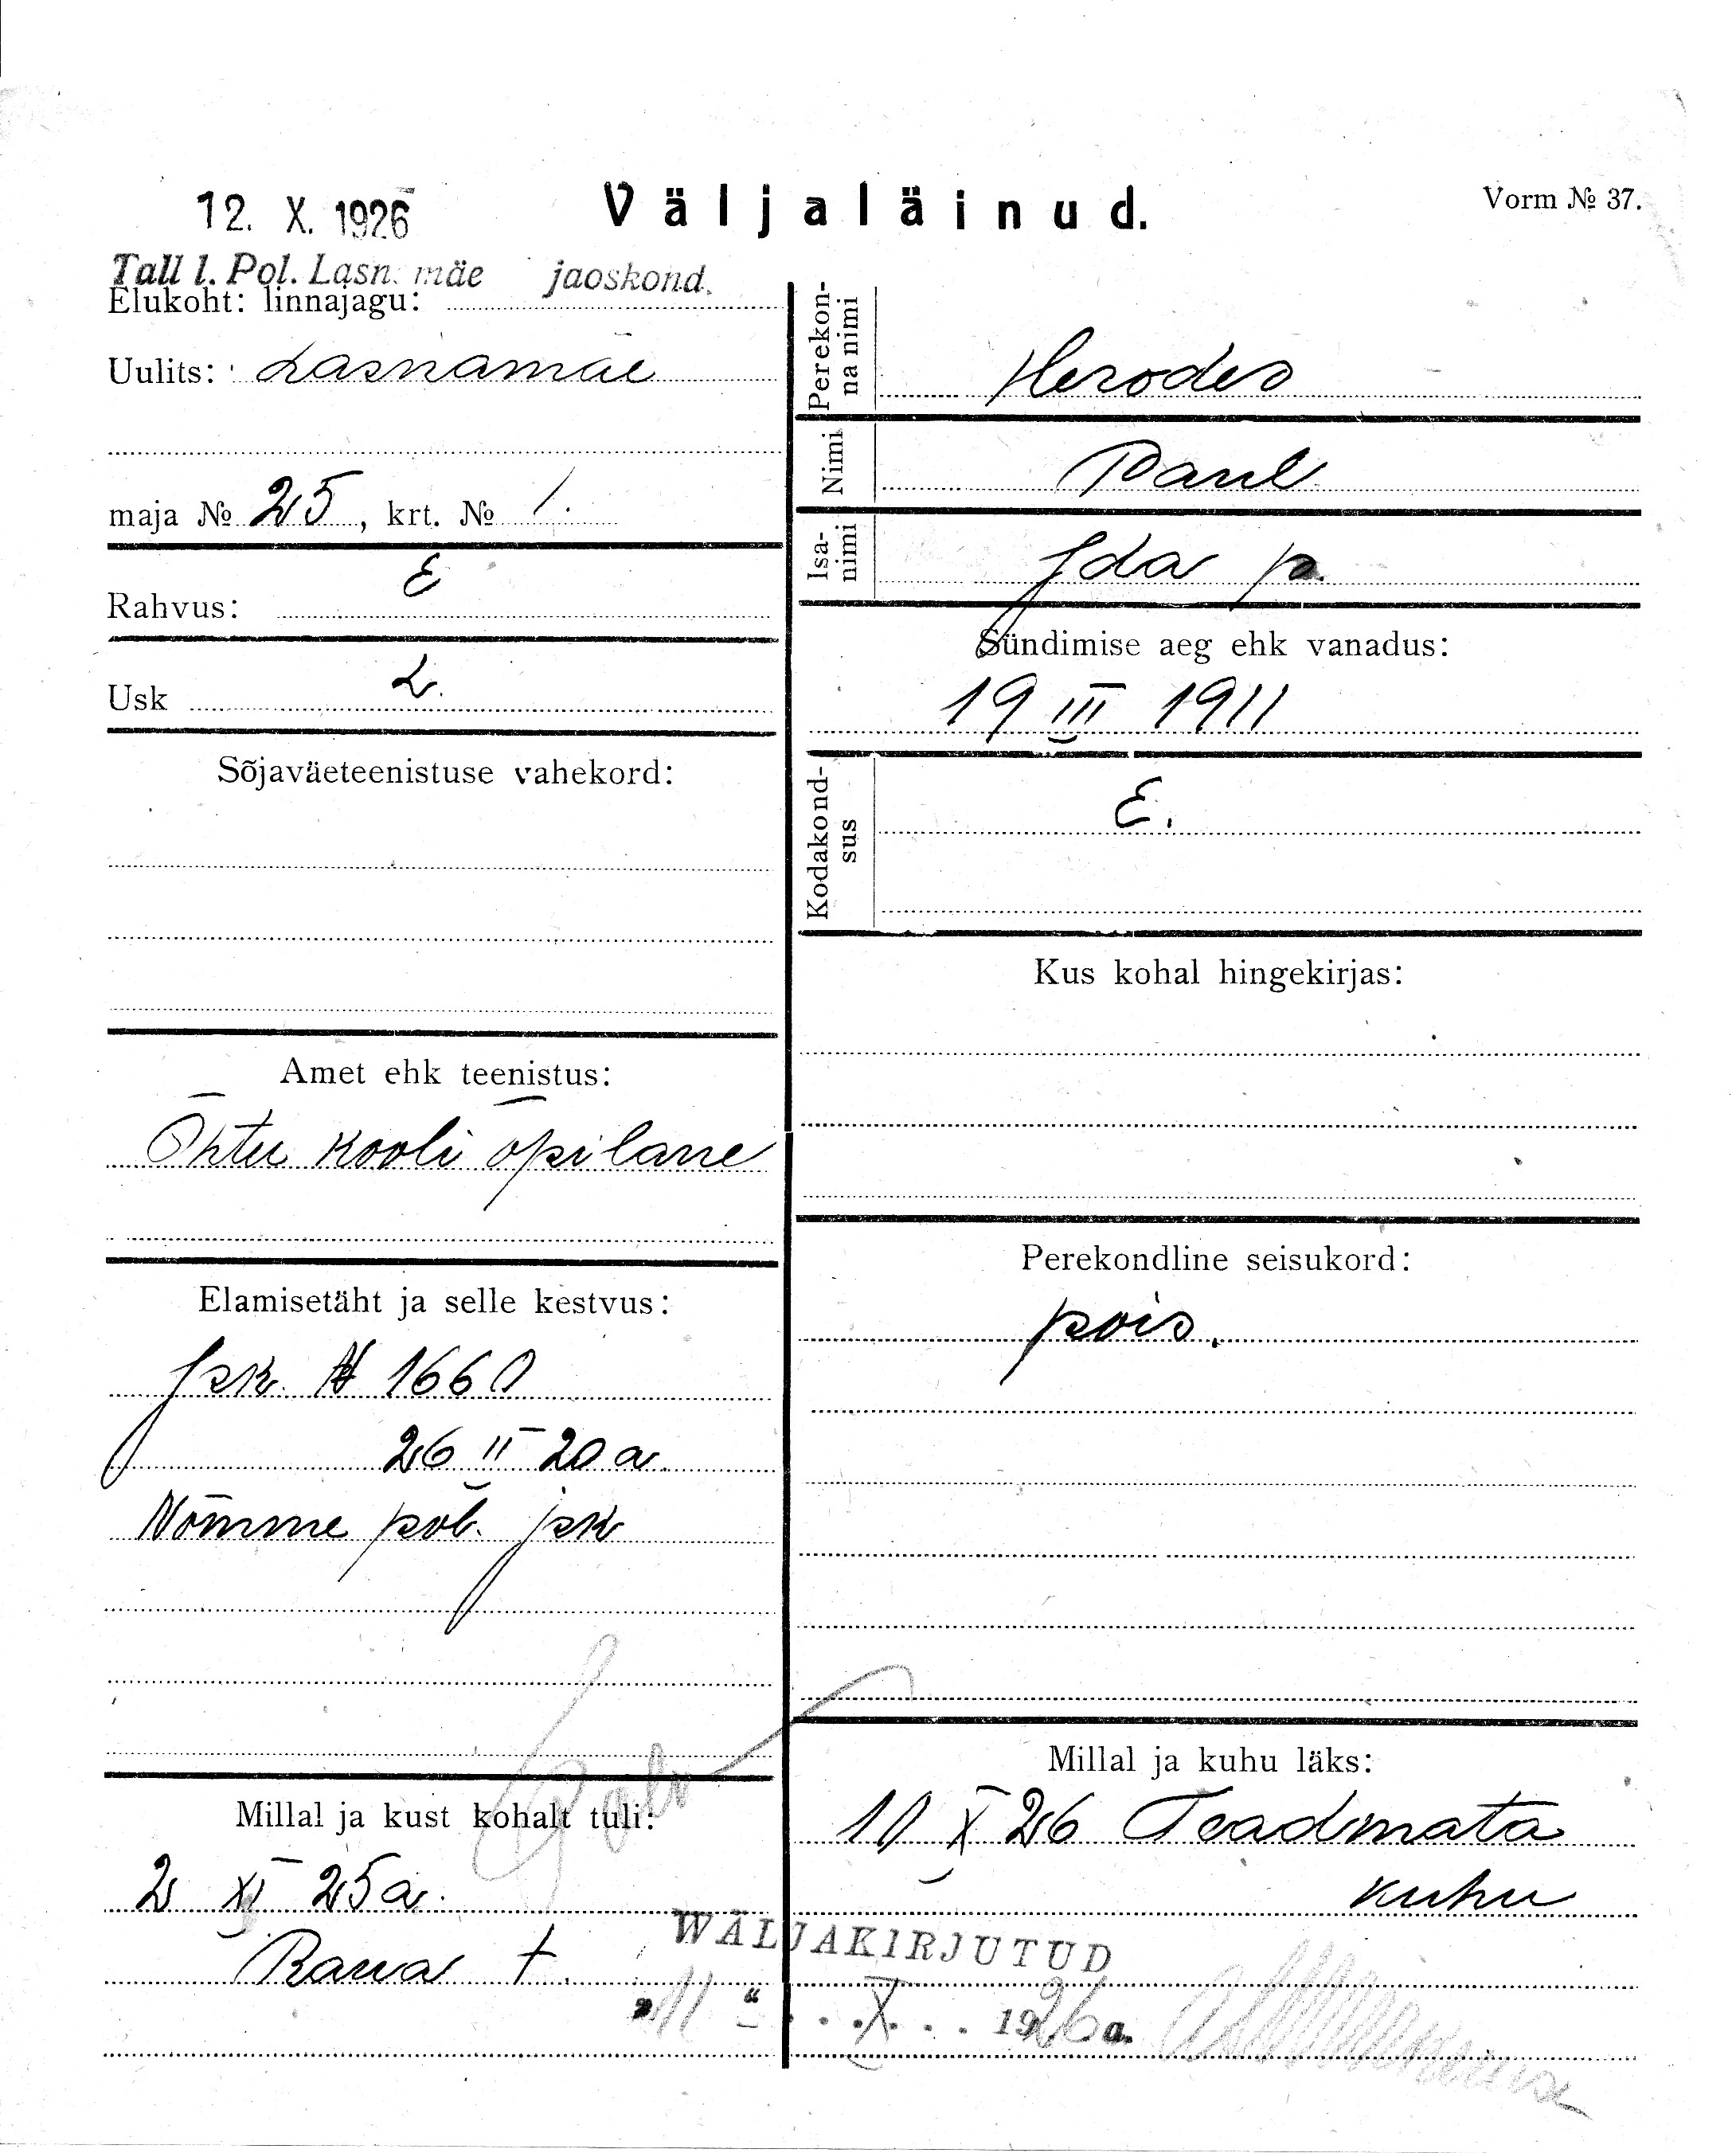 12. X. 1926
Väljaläinud.
Vorm № 37.
Tall l. Pol. Lasn. mäe jaoskond.
Elukoht: linnajagu:
Uulits: Lasnamäe
maja № 25, krt. № 1.
Rahvus: E
Usk L.
Sõjaväeteenistuse vahekord:
Amet ehk teenistus:
Õhtu kooli õpilane
Elamisetäht ja selle kestvus:
Isk. № 1660
26 II 20 a.
Nõmme pol. jsk
Millal ja kust kohalt tuli:
2 XI 25 a.
Raua t.
Perekonna nimi
Herodes
Nimi
Paul
Isanimi
Ida p.
Sündimise aeg ehk vanadus:
19 III 1911
Kodakondsus
E.
Kus kohal hingekirjas:
Perekondline seisukord:
pois.
Millal ja kuhu läks:
10 X 26 Teadmata
kuhu
WÄLJAKIRJUTUD
„11" . . X . . 1926 a.